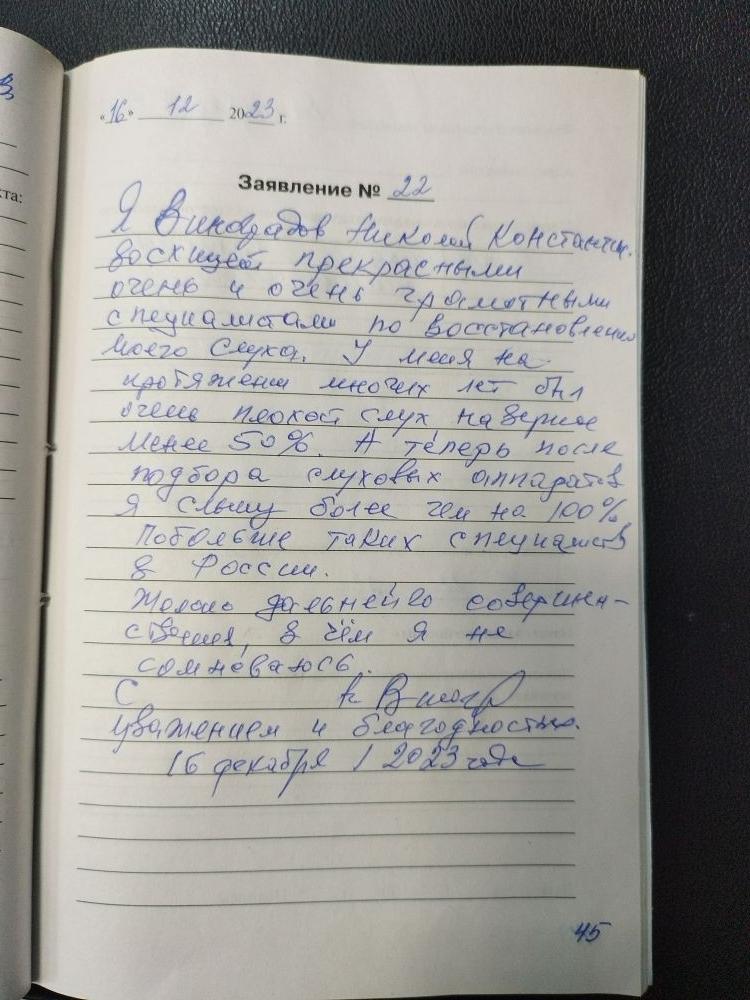 в
кта:
«16» 12 2023 г.
Заявление № 22
Я Николай Константин.
восхищён прекрасными
очень и очень грамотными
специалистами по восстановлению
моего слуха. У меня на
протяжении многих лет был
очень плохой слух, наверное
менее 50%. А теперь после
подбора слуховых аппаратов
я слышу более чем на 100%
Побольше таких специалистов
в России.
Желаю дальнейшего совершен-
ствования, в чём я не
сомневаюсь.
С
уважением и благодностью.
16 декабря 2023 года
45